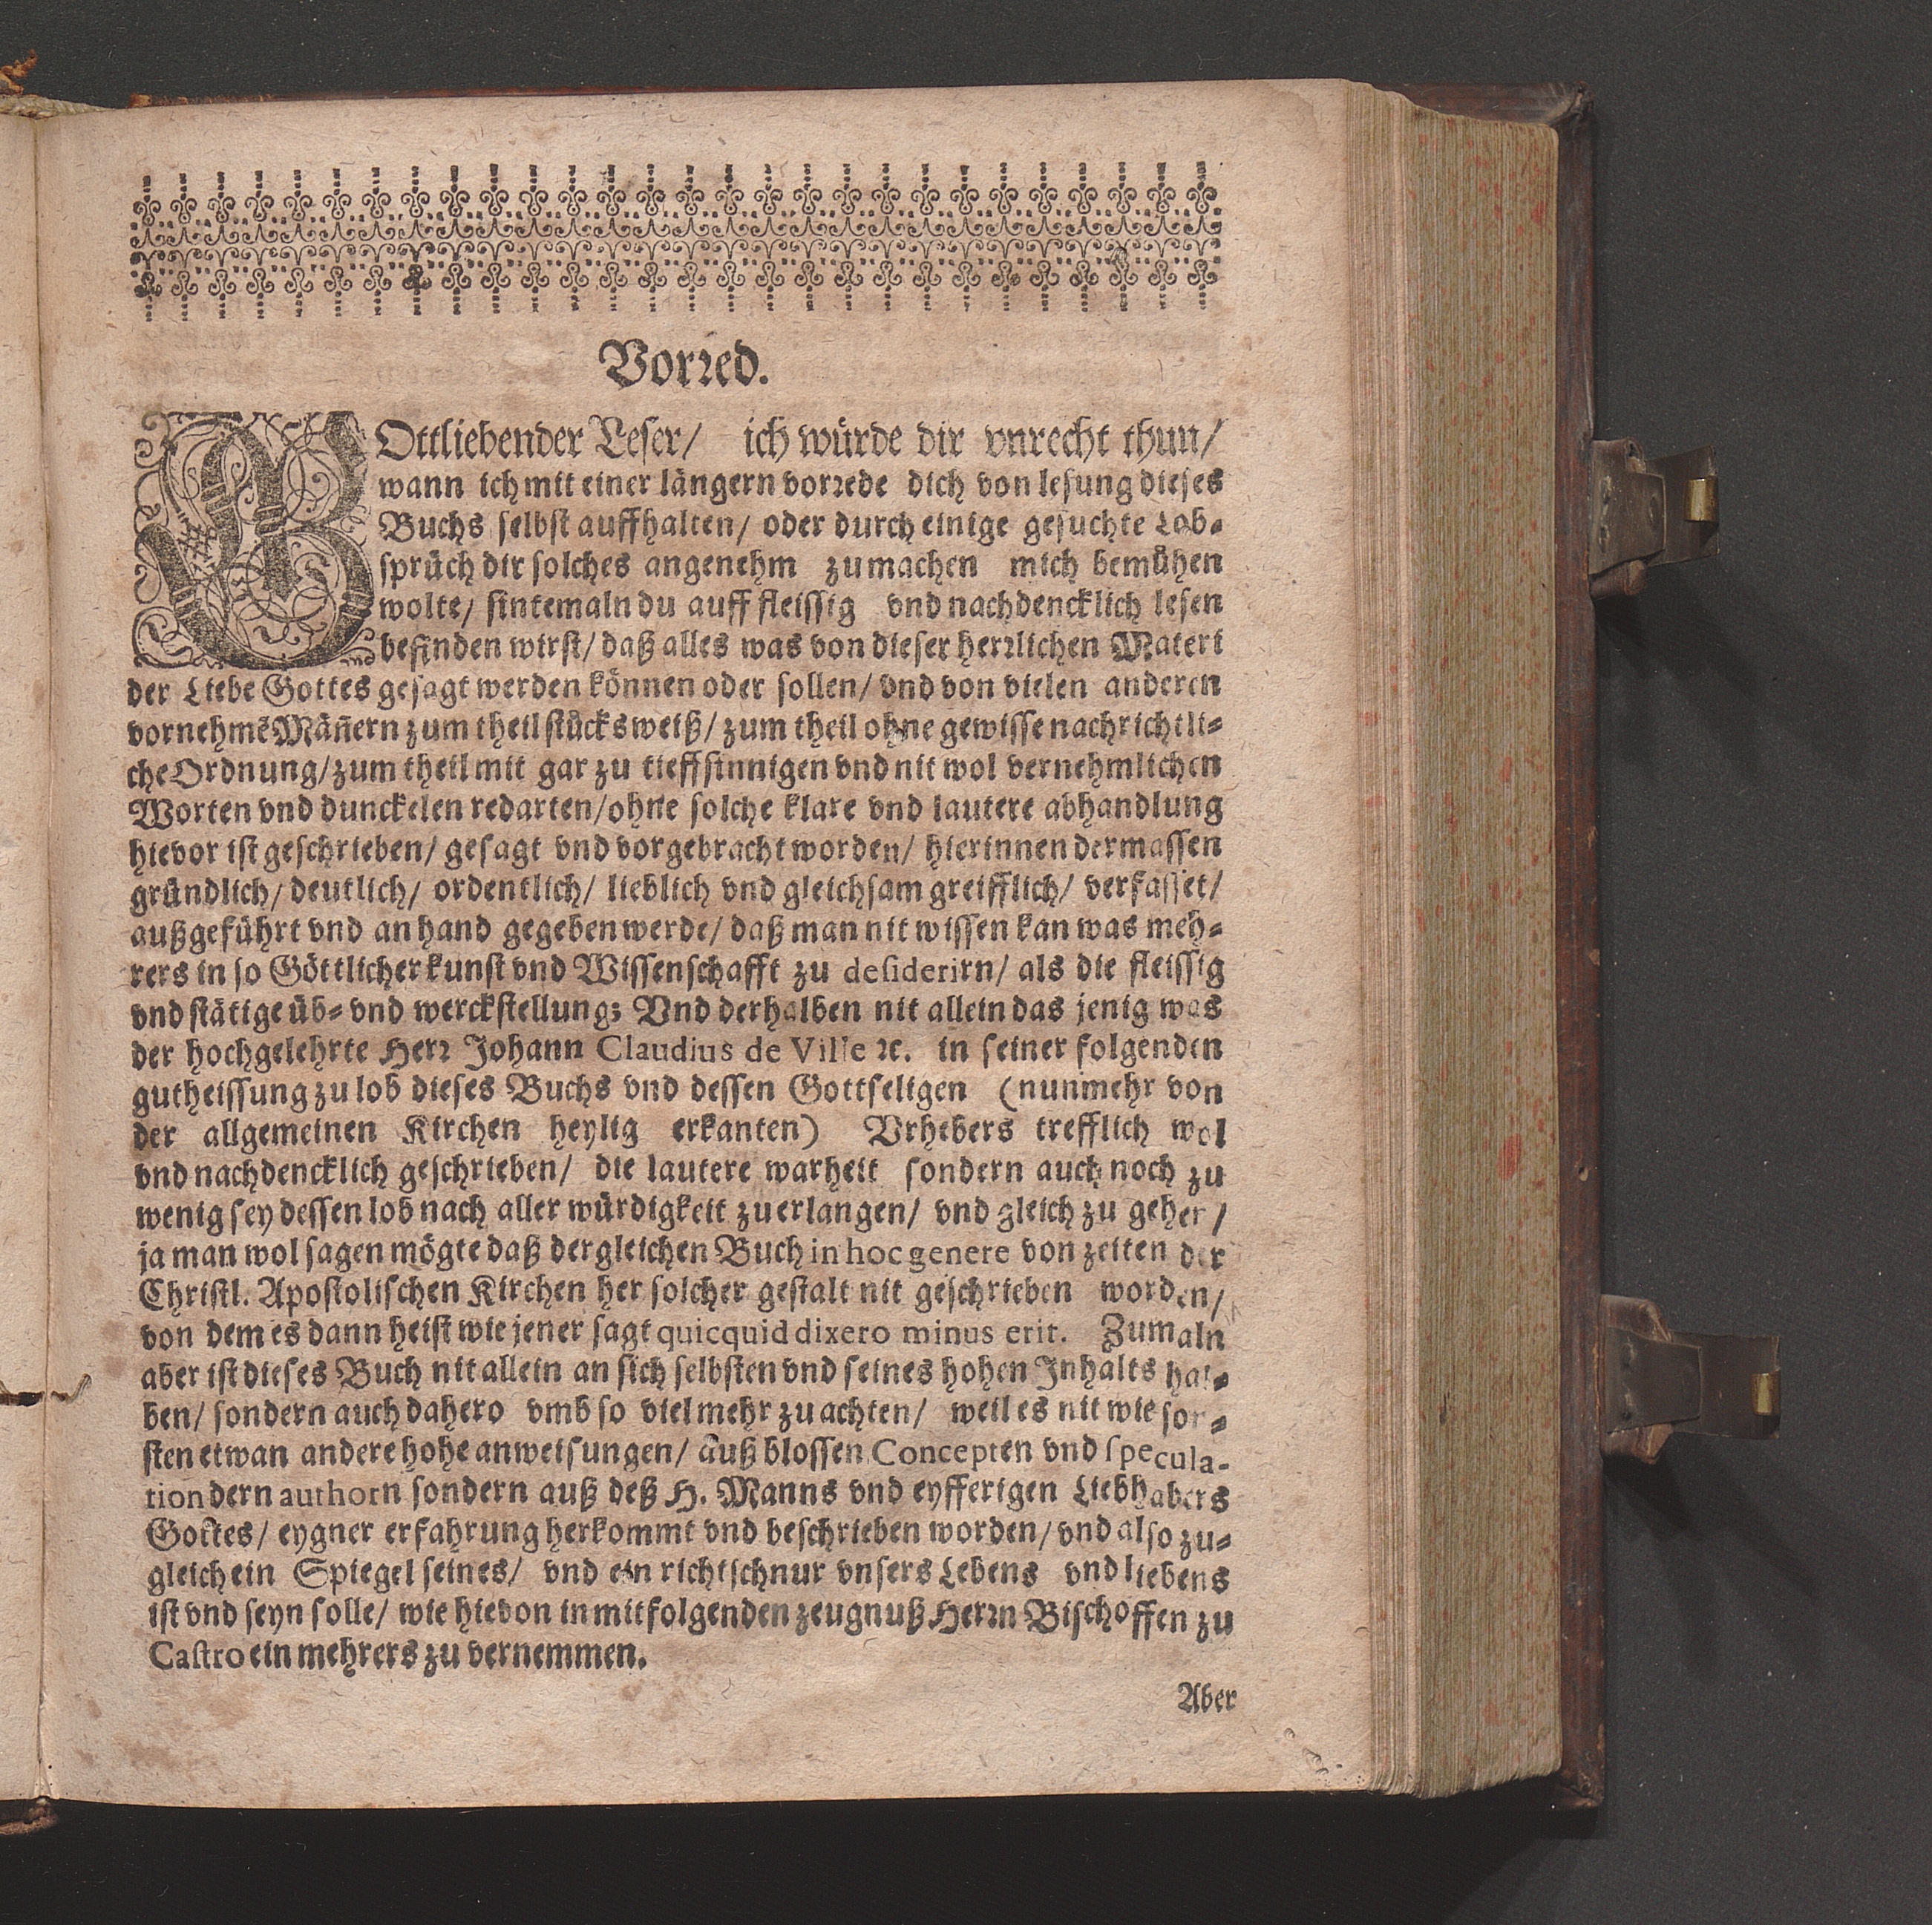 Vorꝛed.
GOttliebender Leser/ ich würde dir vnrecht thun/
wann ich mit einer längern vorꝛede dich von lesung dieses
Buchs selbst auffhalten/ oder durch einige gesuchte Lob-
sprüch dir solches angenehm zumachen mich bemühen
wolte/ sintemaln du auff fleissig vnd nachdencklich lesen
befinden wirst/ daß alles was von dieser herꝛlichen Materi
der Liebe Gottes gesagt werden können oder sollen/ vnd von vielen anderen
vornehmē Mäñern zum theil stücksweiß/ zum theil ohne gewisse nachrichtli-
che Ordnung/ zum theil mit gar zu tieffsinnigen vnd nit wol vernehmlichen
Worten vnd dunckelen redarten/ ohne solche klare vnd lautere abhandlung
hievor ist geschrieben/ gesagt vnd vorgebracht worden/ hierinnen dermassen
gründlich/ deutlich/ ordentlich/ lieblich vnd gleichsam greifflich/ verfasset/
außgeführt vnd an hand gegeben werde/ daß man nit wissen kan was meh-
rers in so Göttlicher kunst vnd Wissenschafft zu desiderirn/ als die fleissig
vnd stätige üb- vnd werckstellung; Vnd derhalben nit allein das jenig was
der hochgelehrte Herꝛ Johann Claudius de Ville ꝛc. in seiner folgenden
gutheissung zu lob dieses Buchs vnd dessen Gottseligen (nunmehr von
der allgemeinen Kirchen heylig erkanten) Vrhebers trefflich wol
vnd nachdencklich geschrieben/ die lautere warheit sondern auch noch zu
wenig sey dessen lob nach aller würdigkeit zuerlangen/ vnd gleich zu gehen/
ja man wol sagen mögte daß dergleichen Buch in hoc genere von zeiten der
Christl. Apostolischen Kirchen her solcher gestalt nit geschrieben worden/
von dem es dann heist wie jener sagt quicquid dixero minus erit. Zumaln
aber ist dieses Buch nit allein an sich selbsten vnd seines hohen Inhalts hal-
ben/ sondern auch dahero vmb so viel mehr zu achten/ weil es nit wie son-
sten etwan andere hohe anweisungen/ auß blossen Concepten vnd specula-
tion dern authorn sondern auß deß H. Manns vnd eyfferigen Liebhabers
Gottes/ eygner erfahrung herkommt vnd beschrieben worden/ vnd also zu-
gleich ein Spiegel seines/ vnd ein richtschnur vnsers Lebens vnd liebens
ist vnd seyn solle/ wie hievon in mitfolgenden zeugnuß Herꝛn Bischoffen zu
Castro ein mehrers zu vernemmen.
Aber